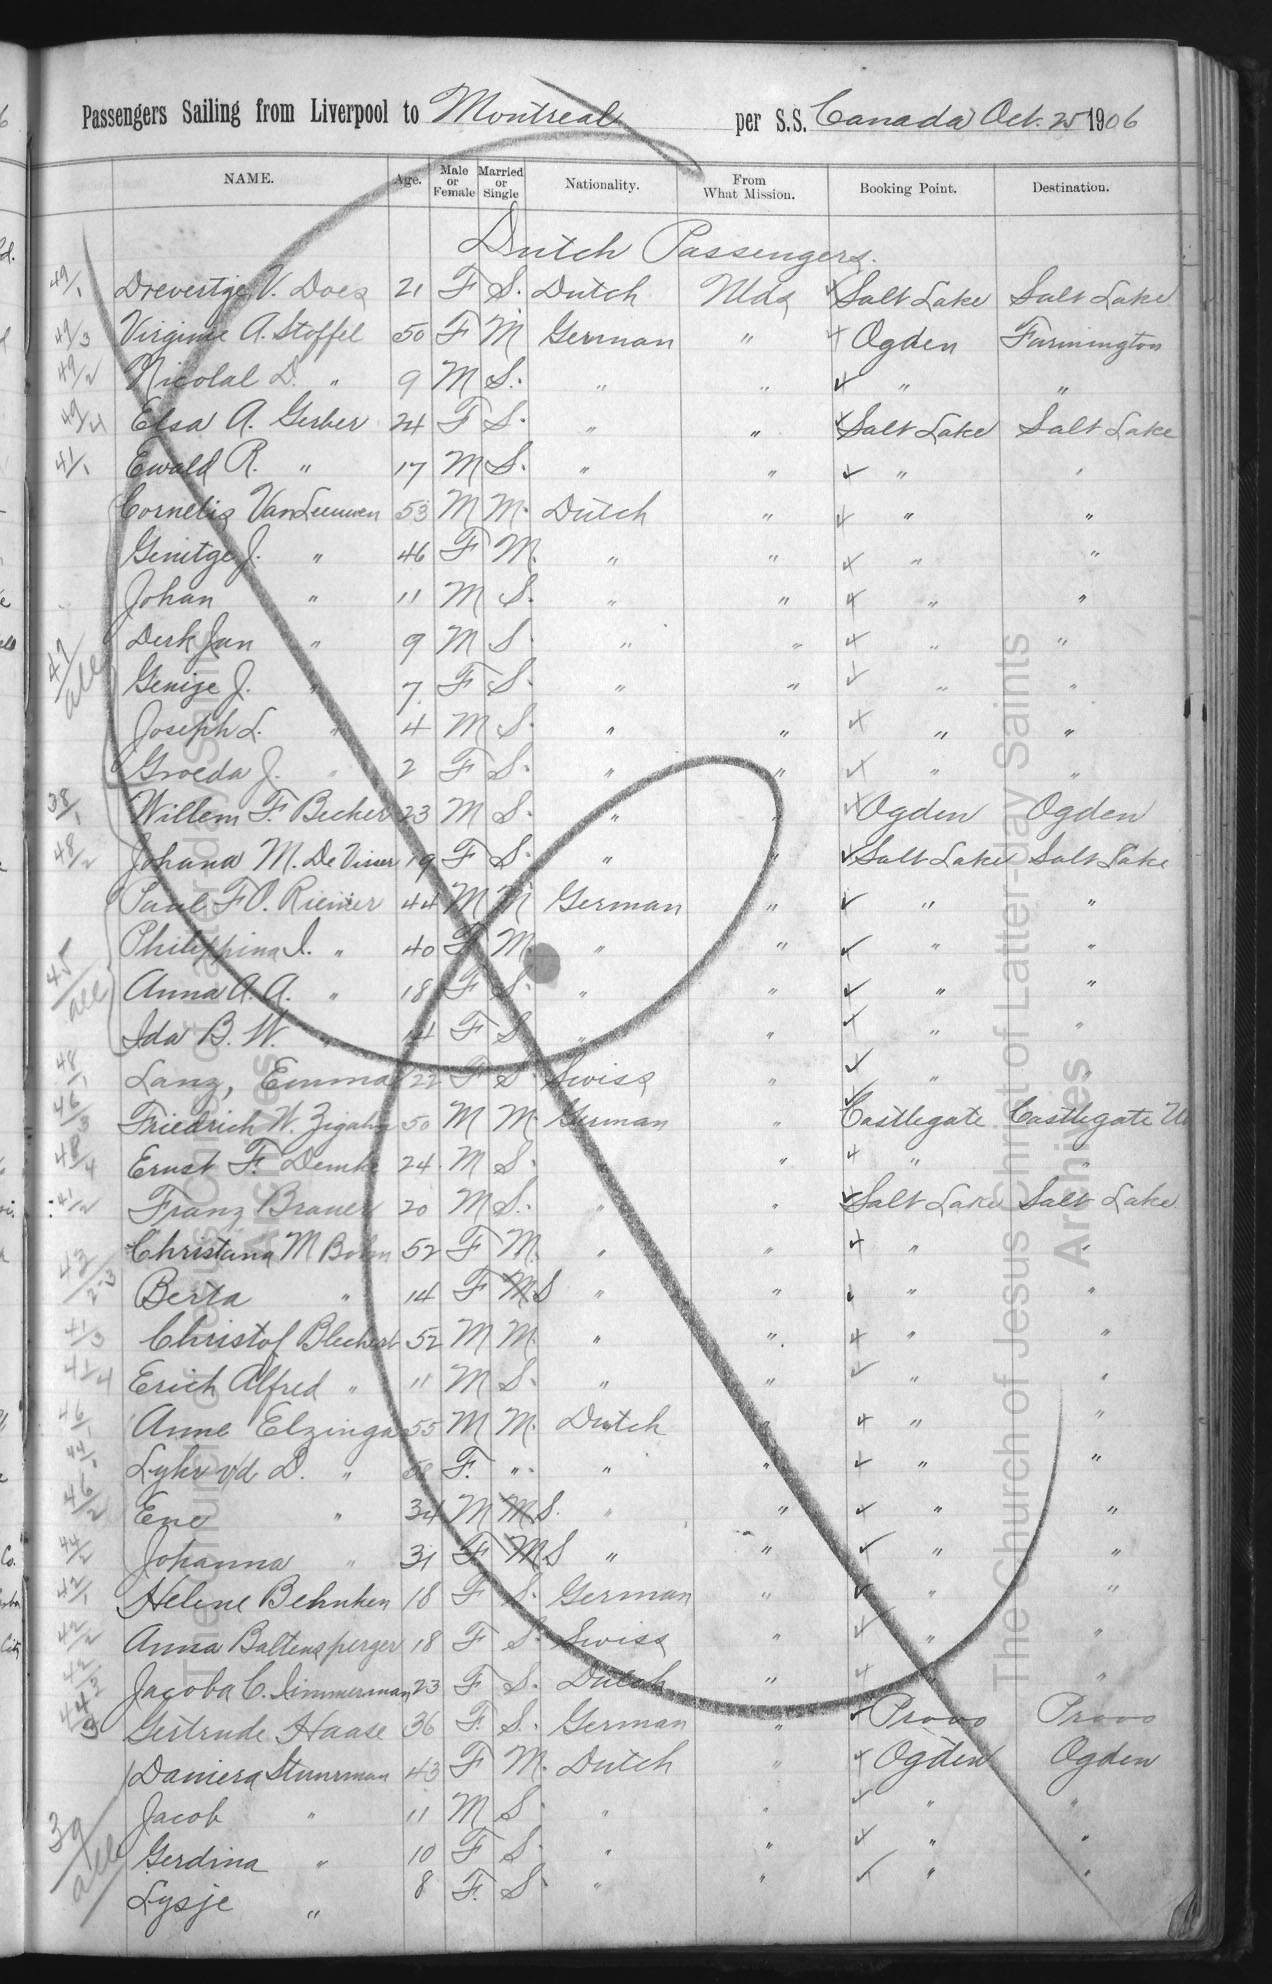 Passengers Sailing from Liverpool to Montreal per S.S. Canada Oct. 25 1906
NAME. Age. Male or Female Married or Single Nationality. From What Mission. Booking Point. Destination.
Dutch Passengers.
49/1 Drevertge V. Does 21 F S. Dutch Nlds Salt Lake Salt Lake
49/3 Virginie A. Stoffel 50 F M German " Ogden Farmington
49/2 Nicolal D. " 9 M S. " " " "
49/4 Elsa A. Gerber 24 F S. " " Salt Lake Salt Lake
41/1 Ewald R. " 17 M S. " " " "
Cornelis VanLeeuwen 53 M M. Dutch " " "
Genitge J. " 46 F M. " " " "
Johan " 11 M S. " " " "
47/all Derk Jan " 9 M S " " " "
Genije J. " 7 F S. " " " "
Joseph L. " 4 M S. " " " "
Groeda J. " 2 F S. " " " "
38/1 Willem F. Becker 23 M S. " " Ogden Ogden
48/2 Johana M. De Visser 19 F S. " " Salt Lake Salt Lake
Paul F.O. Riemer 44 M M German " " "
Philippina I. " 40 F M. " " " "
45/all Anna A. A. " 18 F S. " " " "
Ida B. W. " 14 F S " " " "
48/1 Lanz, Emma 22 F S. Swiss " " "
46/3 Friedrich W. Zigahn 50 M M. German " Castlegate Castlegate
48/4 Ernst F. Demke 24 M S. " " " "
41/2 Franz Brauer 20 M S. " " Salt Lake Salt Lake
43/2-3 Christana M Bohn 52 F M. " " " "
Berta " 14 F S " " " "
41/3 Christof Blechert 52 M M. " " " "
41/4 Erich Alfred " 11 M S. " " " "
46/1 Anne Elzinga 55 M M. Dutch " " "
44/1 Lyhr v/d D. " 58 F. " " " " "
46/2 Ene " 34 M S. " " " "
44/2 Johanna " 31 F S " " " "
42/1 Helene Behnken 18 F S. German " " "
42/2 Anna Baltensperger 18 F S. Swiss " " "
42/3 Jacoba C. Simmerman 23 F S. Dutch " " "
44/3 Gertrude Haase 36 F. S. German " Provo Provo
Daniera Stuurman 43 F M. Dutch " Ogden Ogden
Jacob " 11 M S. " " " "
39/all Gerdina " 10 F S. " " " "
Lysje " 8 F. S " " " "
The Church of Jesus Christ of Latter-day Saints
Archives
The Church of Jesus Christ of Latter-day Saints
Archives